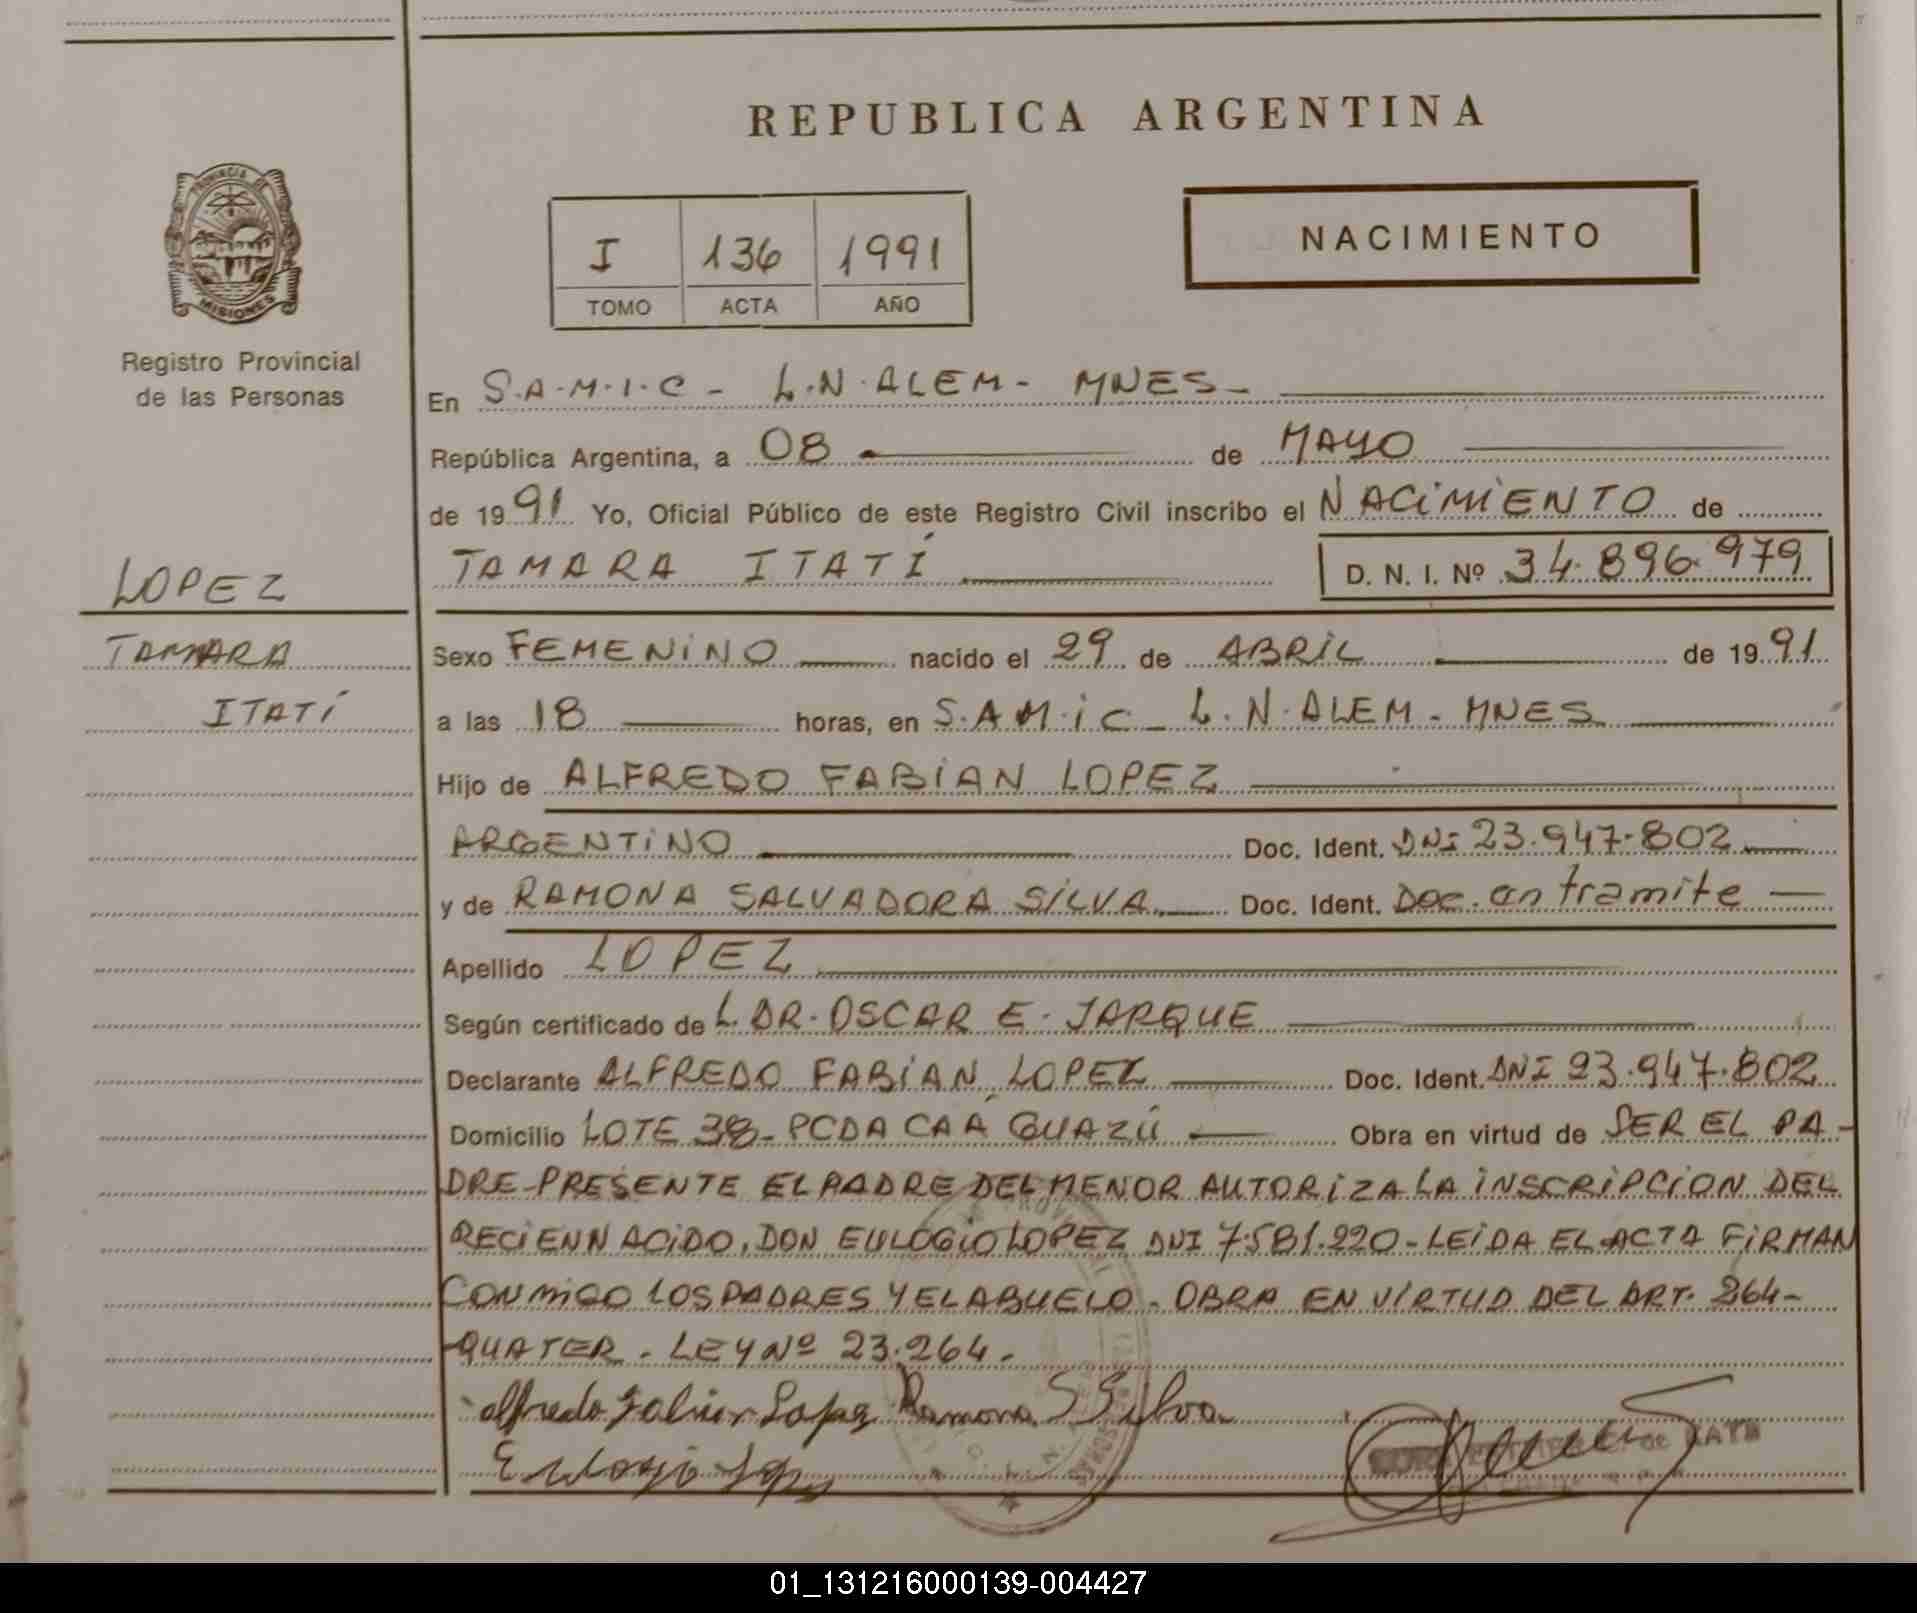 REPUBLICA ARGENTINA
PROVINCIA DE
MISIONES
Registro Provincial
de las Personas
I 136 1991
TOMO ACTA AÑO
NACIMIENTO
En S.A.M.I.C - L.N.ALEM - MNES -
República Argentina, a 08 de MAYO
de 1991 Yo, Oficial Público de este Registro Civil inscribo el NACIMIENTO de
LOPEZ
TAMARA ITATÍ D. N. I. Nº 34.896.979
TAMARA
Sexo FEMENINO nacido el 29 de ABRIL de 1991
ITATÍ
a las 18 horas, en S.A.M.i.C - L.N.ALEM - MNES
Hijo de ALFREDO FABIAN LOPEZ
ARGENTINO Doc. Ident. DNI 23.947.802
y de RAMONA SALVADORA SILVA Doc. Ident. Doc. en tramite
Apellido LOPEZ
Según certificado de L. DR. OSCAR E. JARQUE
Declarante ALFREDO FABIAN LOPEZ Doc. Ident. DNI 23.947.802
Domicilio LOTE 38 - PCDA CAÁ GUAZÚ Obra en virtud de SER EL PA-
DRE - PRESENTE EL PADRE DEL MENOR AUTORIZA LA INSCRIPCION DEL
RECIEN NACIDO, DON EULOGIO LOPEZ DNI 7.581.220 - LEIDA EL ACTA FIRMAN
CONMIGO LOS PADRES Y EL ABUELO - OBRA EN VIRTUD DEL ART. 264 -
QUATER - LEY Nº 23.264.
Alfredo Fabian Lopez Ramona S Silva
Eulogio Lopez
01_131216000139-004427